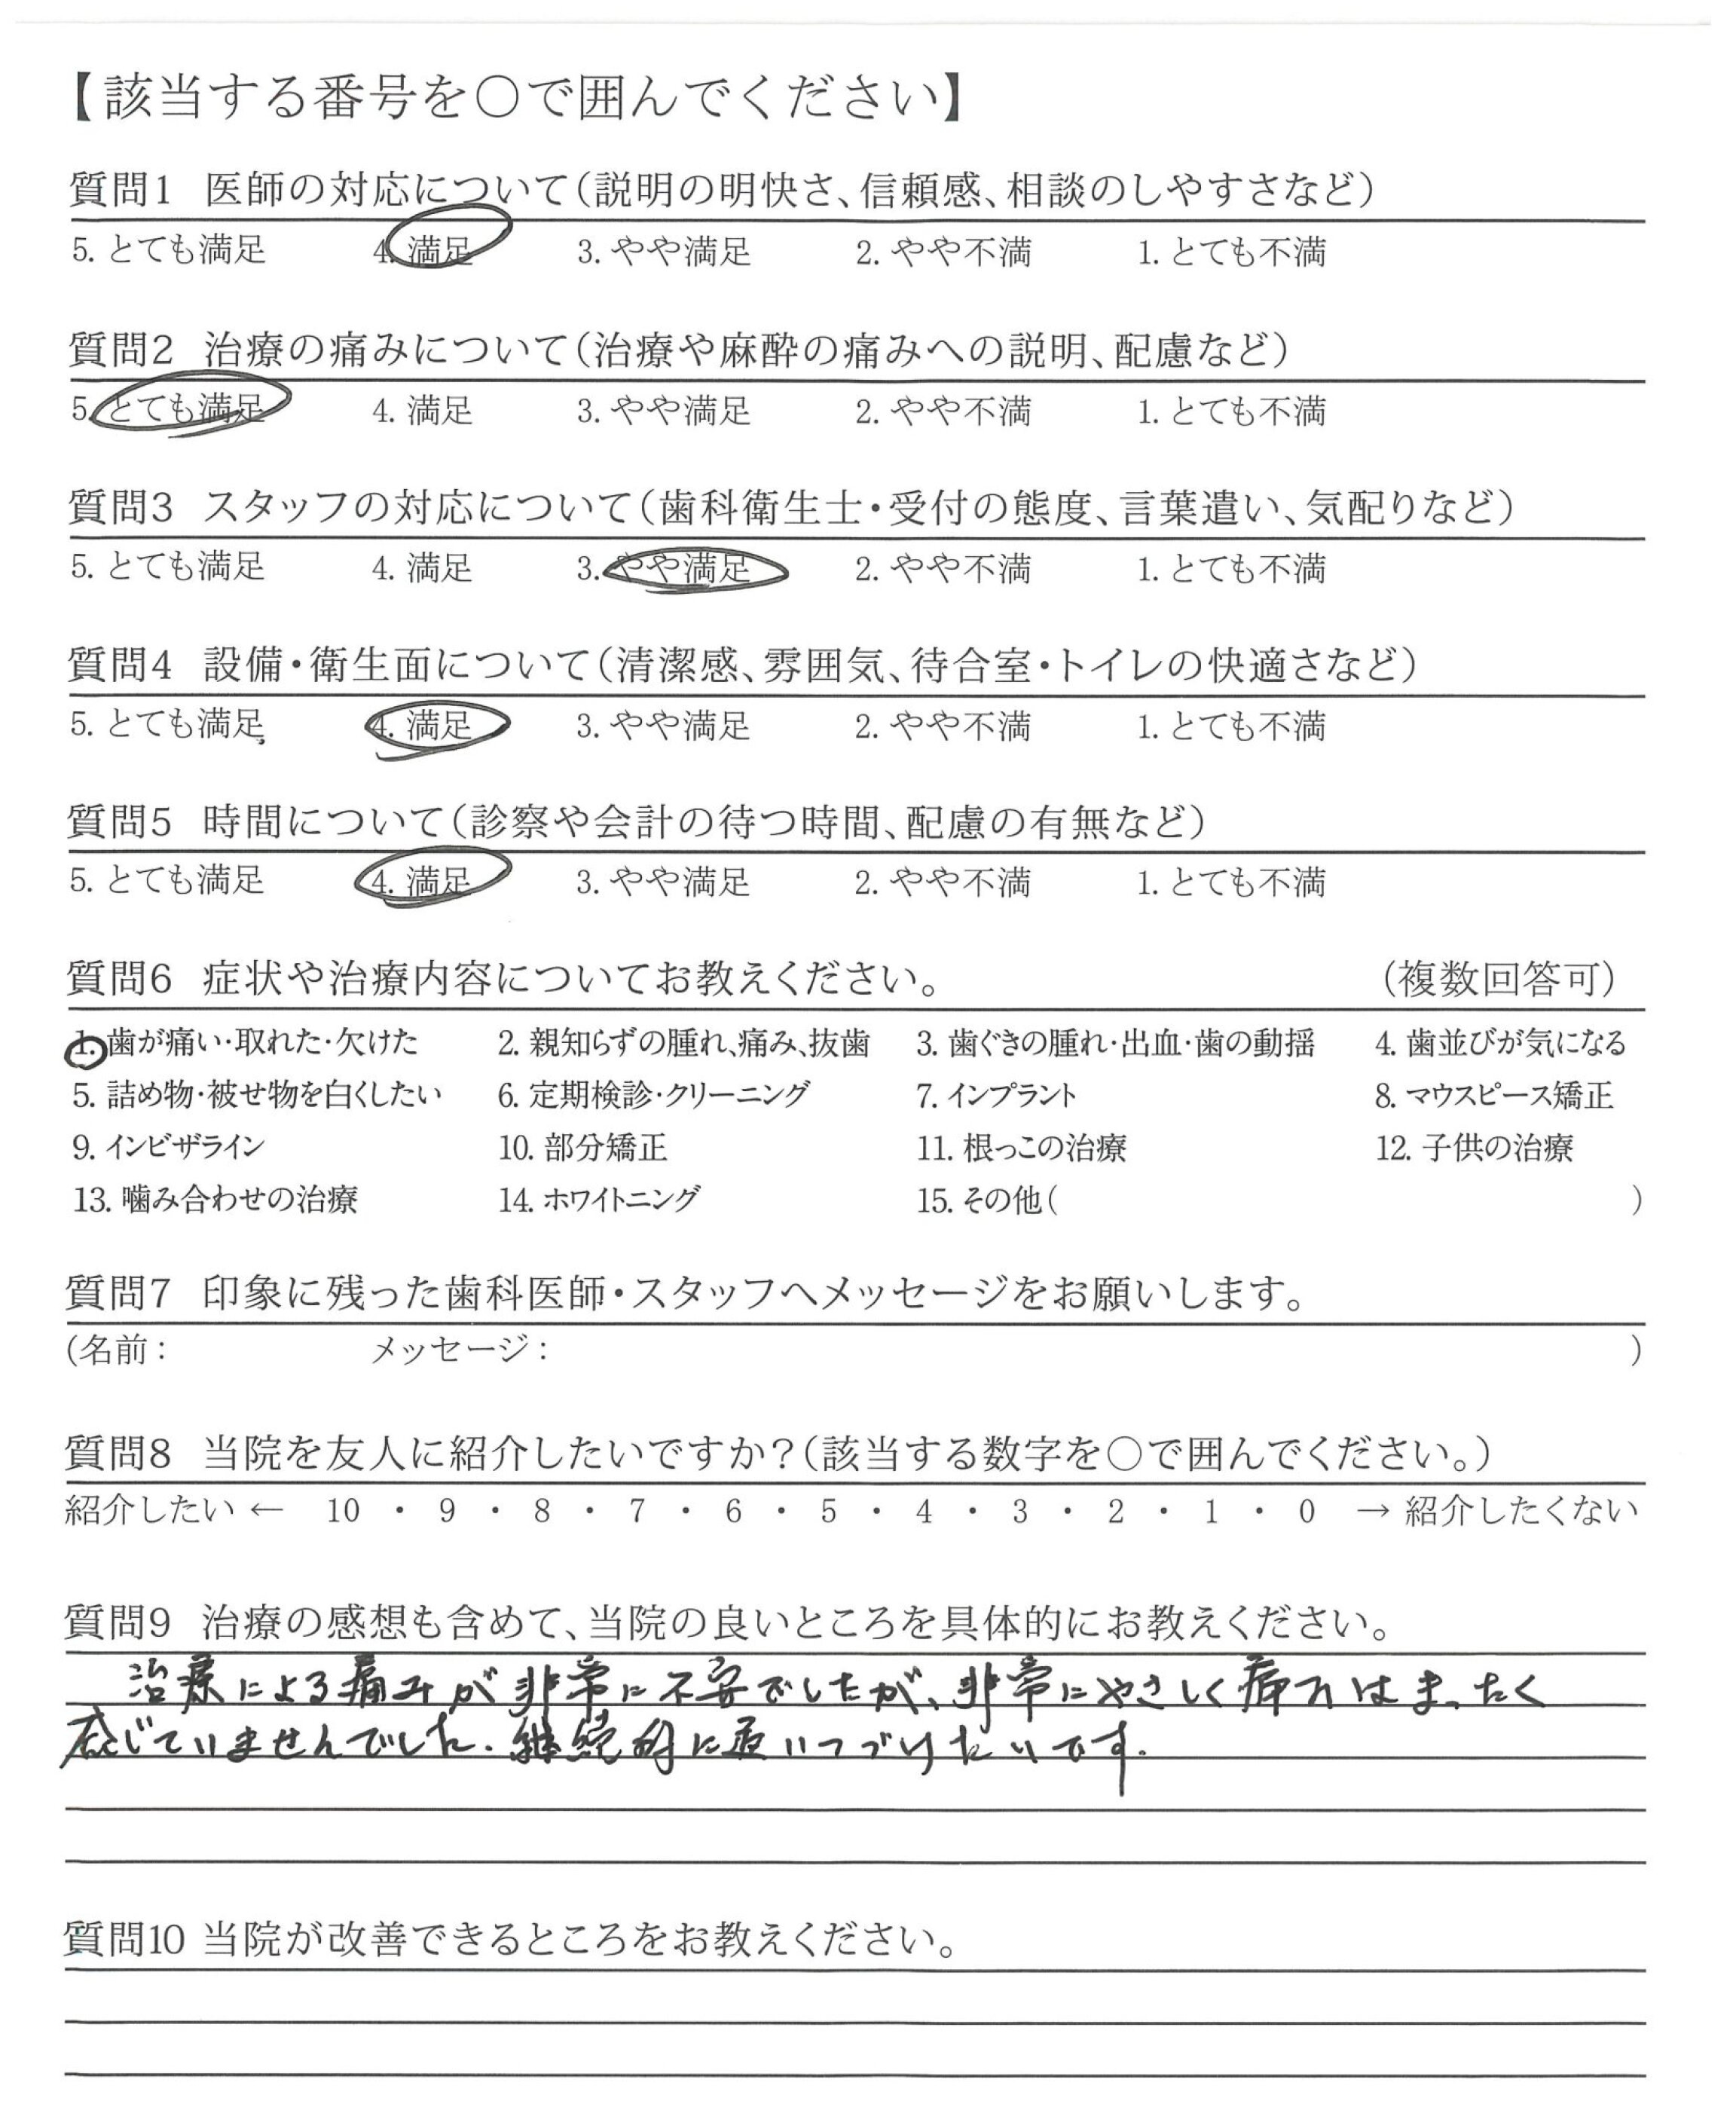 【該当する番号を○で囲んでください】
質問1 医師の対応について(説明の明快さ、信頼感、相談のしやすさなど)
5. とても満足 4. 満足 3. やや満足 2. やや不満 1. とても不満
質問2 治療の痛みについて(治療や麻酔の痛みへの説明、配慮など)
5. とても満足 4. 満足 3. やや満足 2. やや不満 1. とても不満
質問3 スタッフの対応について(歯科衛生士・受付の態度、言葉遣い、気配りなど)
5. とても満足 4. 満足 3. やや満足 2. やや不満 1. とても不満
質問4 設備・衛生面について(清潔感、雰囲気、待合室・トイレの快適さなど)
5. とても満足 4. 満足 3. やや満足 2. やや不満 1. とても不満
質問5 時間について(診察や会計の待つ時間、配慮の有無など)
5. とても満足 4. 満足 3. やや満足 2. やや不満 1. とても不満
質問6 症状や治療内容についてお教えください。 (複数回答可)
1. 歯が痛い・取れた・欠けた 2. 親知らずの腫れ、痛み、抜歯 3. 歯ぐきの腫れ・出血・歯の動揺 4. 歯並びが気になる
5. 詰め物・被せ物を白くしたい 6. 定期検診・クリーニング 7. インプラント 8. マウスピース矯正
9. インビザライン 10. 部分矯正 11. 根っこの治療 12. 子供の治療
13. 噛み合わせの治療 14. ホワイトニング 15. その他( )
質問7 印象に残った歯科医師・スタッフへメッセージをお願いします。
(名前: メッセージ: )
質問8 当院を友人に紹介したいですか?(該当する数字を○で囲んでください。)
紹介したい ← 10 ・ 9 ・ 8 ・ 7 ・ 6 ・ 5 ・ 4 ・ 3 ・ 2 ・ 1 ・ 0 → 紹介したくない
質問9 治療の感想も含めて、当院の良いところを具体的にお教えください。
治療による痛みが非常に不安でしたが、非常にやさしく痛みはまったく
感じていませんでした. 継続的に通いつづけたいです.
質問10 当院が改善できるところをお教えください。